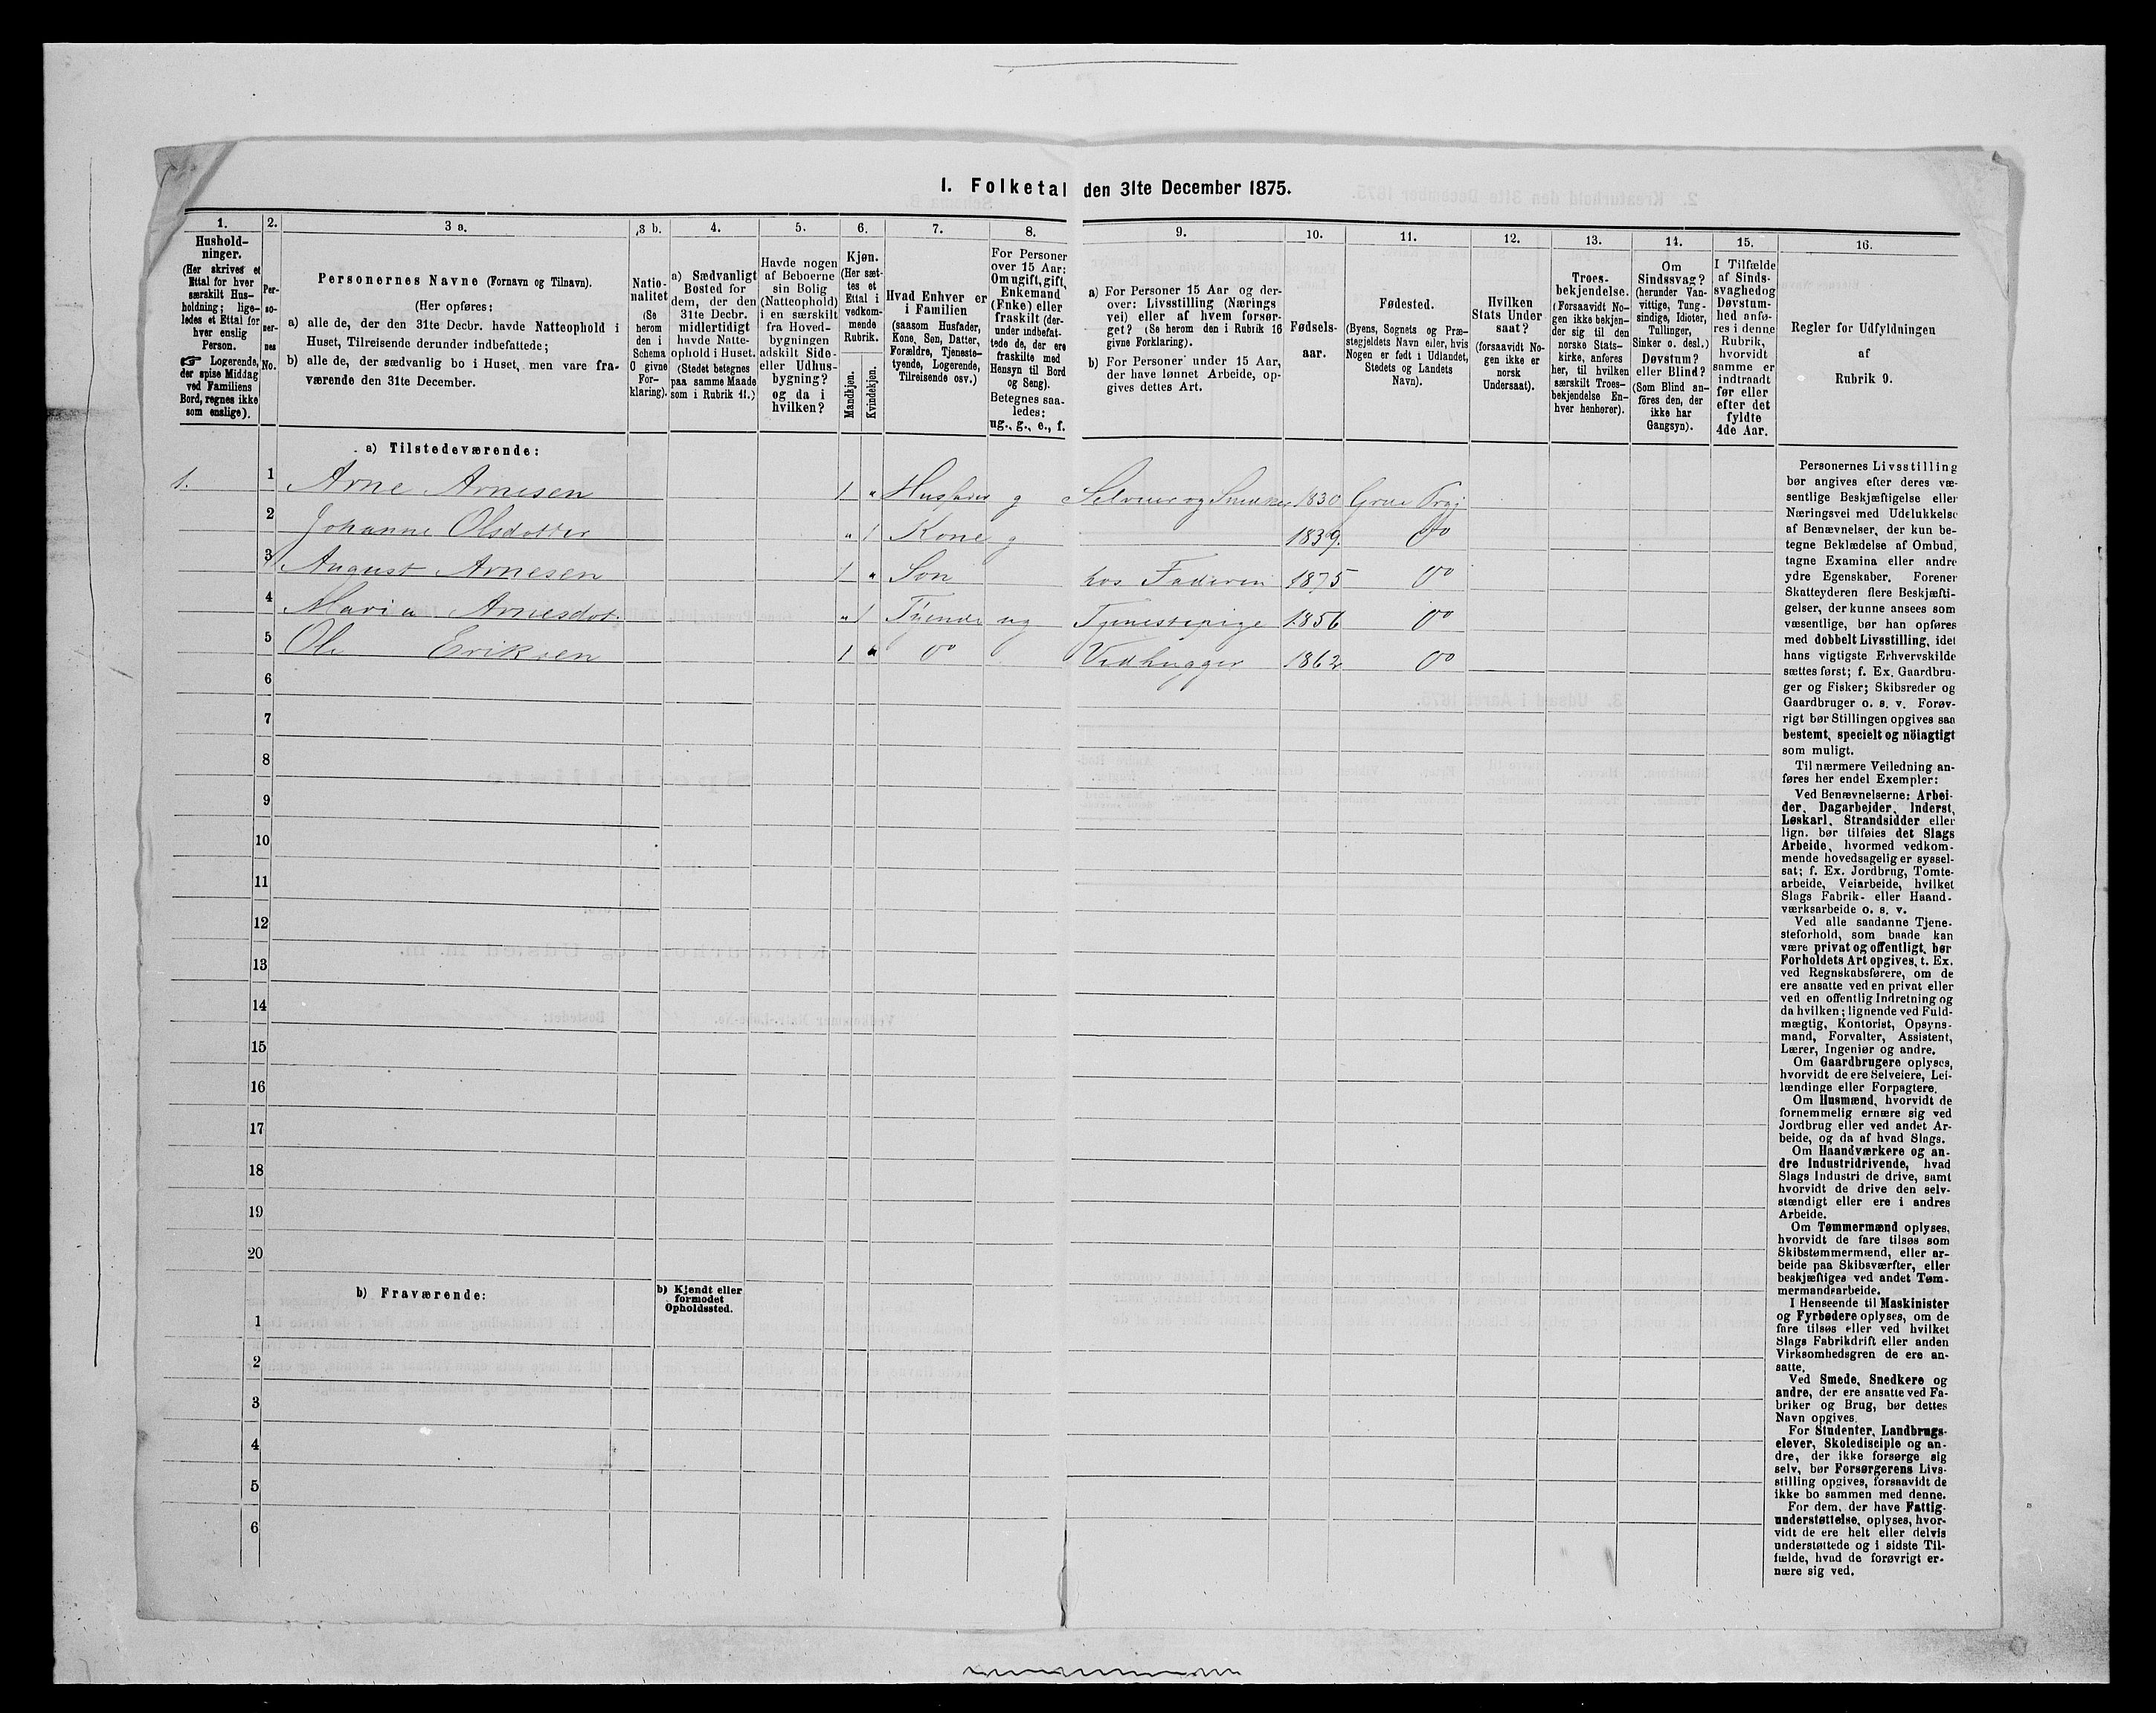 I. Folketal den 31te December 1875.
1. 2. 3 a. 3 b. 4. 5. 6. 7. 8. 9. 10. 11. 12. 13. 14. 15. 16.
Hushold-
ninger.
(Her skrives et
Ettal for hver
særskilt Hus-
holdning; lige-
ledes et Ettal for
hver enslig
Person.
☞ Logerende,
der spise Middag
ved Familiens
Bord, regnes ikke
som enslige).
Per-
so-
ner-
nes
No.
Personernes Navne (Fornavn og Tilnavn).
(Her opføres:
a) alle de, der den 31te Decbr. havde Natteophold i
Huset, Tilreisende derunder indbefattede;
b) alle de, der sædvanlig bo i Huset, men vare fra-
værende den 31te December.
Natio-
nalitet
(Se
herom
den i
Schema
O givne
For-
klaring).
a) Sædvanligt
Bosted for
dem, der den
31te Decbr.
midlertidigt
havde Natte-
ophold i Huset.
(Stedet betegnes
paa samme Maade
som i Rubrik 11.)
Havde nogen
af Beboerne
sin Bolig
(Natteophold)
i en særskilt
fra Hoved-
bygningen
adskilt Side-
eller Udhus-
bygning?
og da i
hvilken?
Kjøn.
(Her sæt-
tes et
Ettal i
vedkom-
mende
Rubrik.
Mandkjøn.
Kvindekjøn.
Hvad Enhver er
i Familien
(saasom Husfader,
Kone, Søn, Datter,
Forældre, Tjeneste-
tyende, Logerende,
Tilreisende osv.)
For Personer
over 15 Aar:
Om ugift, gift,
Enkemand
(Enke) eller
fraskilt (der-
under indbefat-
tede de, der ere
fraskilte med
Hensyn til Bord
og Seng).
Betegnes saa-
ledes:
ug., g., e., f.
a) For Personer 15 Aar og der-
over: Livsstilling (Nærings
vei) eller af hvem forsør-
get? (Se herom den i Rubrik 16
givne Forklaring).
b) For Personer under 15 Aar,
der have lønnet Arbeide, op-
gives dettes Art.
Fødsels-
aar.
Fødested.
(Byens, Sognets og Præ-
stegjeldets Navn eller, hvis
Nogen er født i Udlandet,
Stedets og Landets
Navn).
Hvilken
Stats Under
saat?
(forsaavidt No-
gen ikke er
norsk
Undersaat).
Troes-
bekjendelse.
(Forsaavidt No-
gen ikke bekjen-
der sig til den
norske Stats-
kirke, anføres
her, til hvilken
særskilt Troes-
bekjendelse En-
hver henhører).
Om
Sindssvag?
(herunder Van-
vittige, Tung-
sindige, Idioter,
Tullinger,
Sinker o. desl.)
Døvstum?
eller Blind?
(Som Blind an-
føres den, der
ikke har
Gangsyn).
I Tilfælde
af Sinds-
svaghed og
Døvstum-
hed anfø-
res i denne
Rubrik,
hvorvidt
samme er
indtraadt
før eller
efter det
fyldte
4de Aar.
Regler for Udfyldningen
af
Rubrik 9.
a) Tilstedeværende:
1. 1 Arne Arnesen 1 " Husfader g Selveier og Snedker 1830 Grue Prgj
2 Johanne Olsdotter " 1 Kone g 1839. Do
3 August Arnesen 1 " Søn hos Faderen 1875 Do
4 Maria Arnesdot. " 1 Tjende ug Tjenestepige 1856 Do
5 Ole Eriksen 1 " Do Vedhugger 1862 Do
6
7
8
9
10
11
12
13
14
15
16
17
18
19
20
b) Fraværende:
b) Kjendt eller
formodet
Opholdssted.
1
2
3
4
5
6
Personernes Livsstilling
bør angives efter deres væ-
sentlige Beskjæftigelse eller
Næringsvei med Udelukkelse
af Benævnelser, der kun be-
tegne Beklædelse af Ombud,
tagne Examina eller andre
ydre Egenskaber. Forener
Skatteyderen flere Beskjæfti-
gelser, der kunne ansees som
væsentlige, bør han opføres
med dobbelt Livsstilling, idet
hans vigtigste Erhvervskilde
sættes først; f. Ex. Gaardbru-
ger og Fisker; Skibsreder og
Gaardbruger o. s. v. Forøv-
rigt bør Stillingen opgives saa
bestemt, specielt og nöiagtigt
som muligt.
Til nærmere Veiledning an-
føres her endel Exempler:
Ved Benævnelserne: Arbei-
der, Dagarbeider, Inderst,
Løskarl, Strandsidder eller
lign. bør tilføies det Slags
Arbeide, hvormed vedkom-
mende hovedsagelig er syssel-
sat; f. Ex. Jordbrug, Tomte-
arbeide, Veiarbeide, hvilket
Slags Fabrik- eller Haand-
værksarbeide o. s. v.
Ved alle saadanne Tjene-
steforhold, som baade kan
være privat og offentligt, bør
Forholdets Art opgives, t. Ex.
ved Regnskabsførere, om de
ere ansatte ved en privat eller
ved en offentlig Indretning og
da hvilken; lignende ved Fuld-
mægtig, Kontorist, Opsyns-
mand, Forvalter, Assistent,
Lærer, Ingeniør og andre.
Om Gaardbrugere oplyses,
hvorvidt de ere Selveiere, Lei-
lændinge eller Forpagtere.
Om Husmænd, hvorvidt de
fornemmelig ernære sig ved
Jordbrug eller ved andet Ar-
beide, og da af hvad Slags.
Om Haandværkere og an-
dre Industridrivende, hvad
Slags Industri de drive, samt
hvorvidt de drive den selv-
stændigt eller ere i andres
Arbeide.
Om Tømmermænd oplyses,
hvorvidt de fare tilsøs som
Skibstømmermænd, eller ar-
beide paa Skibsværfter, eller
beskjæftiges ved andet Tøm-
mermandsarbeide.
I Henseende til Maskinister
og Fyrbødere oplyses, om de
fare tilsøs eller ved hvilket
Slags Fabrikdrift eller anden
Virksomhedsgren de ere an-
satte.
Ved Smede, Snedkere og
andre, der ere ansatte ved Fa-
briker og Brug, bør dettes
Navn opgives.
For Studenter, Landbrugs-
elever, Skoledisciple og an-
dre, der ikke forsørge sig
selv, bør Forsørgerens Livs-
stilling opgives, forsaavidt de
ikke bo sammen med denne.
For dem, der have Fattig-
understøttelse, oplyses, hvor-
vidt de ere helt eller delvis
understøttede og i sidste Til-
fælde, hvad de forøvrigt er-
nære sig ved.